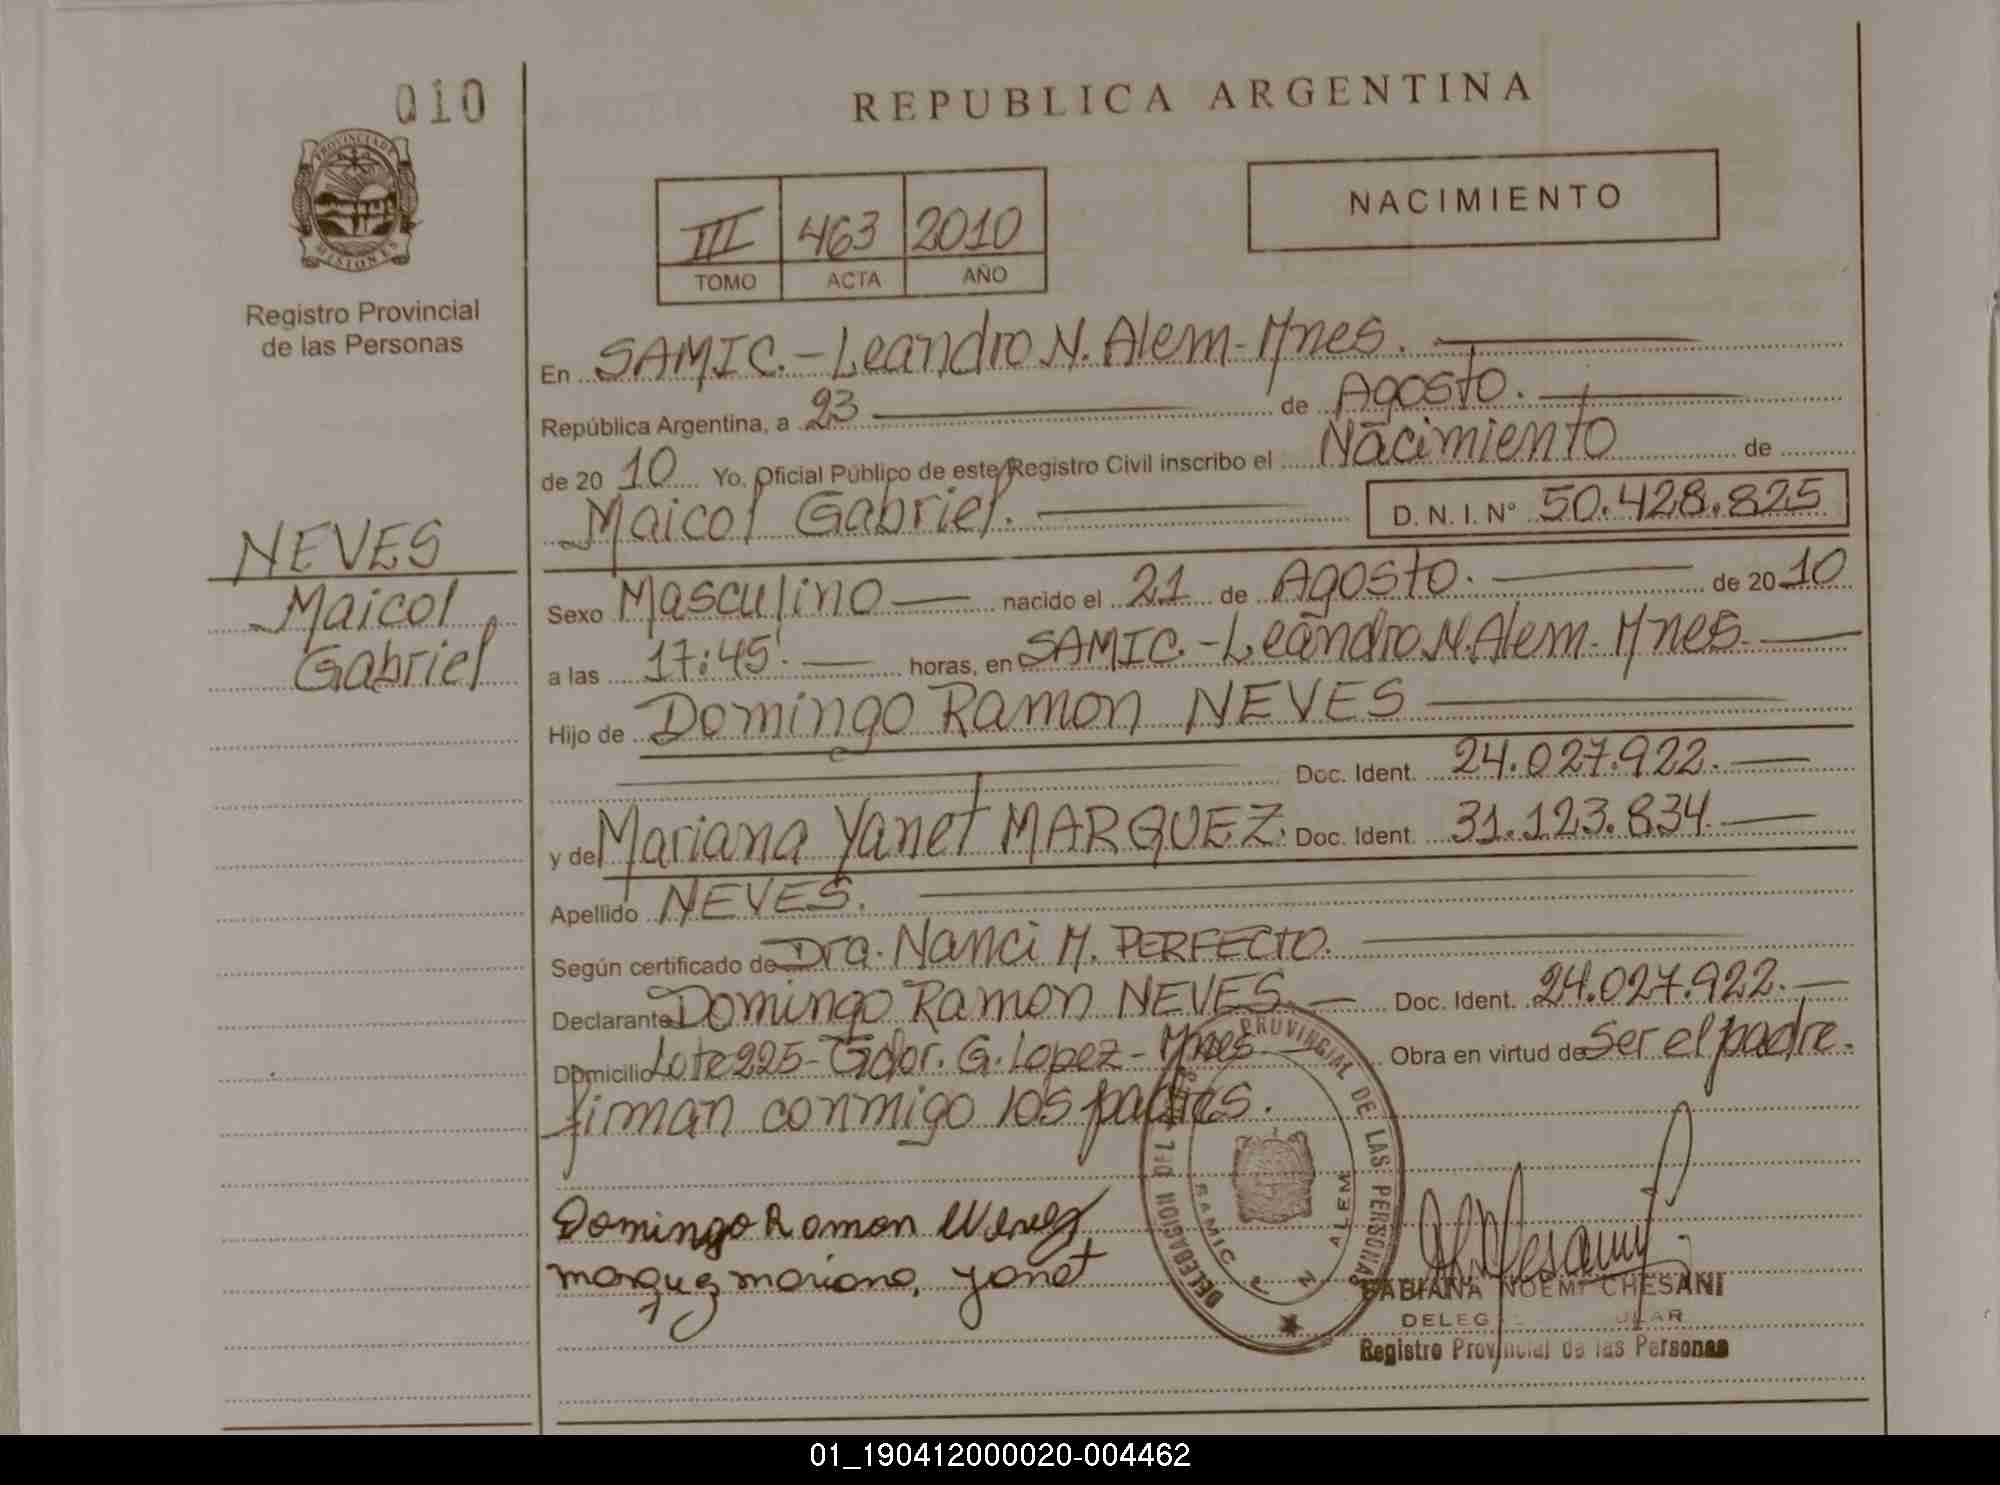 010
REPUBLICA ARGENTINA
PROVINCIA DE
MISIONES
NACIMIENTO
III 463 2010
TOMO ACTA AÑO
Registro Provincial
de las Personas
En SAMIC.-Leandro N. Alem-Mnes.
República Argentina, a 23 de Agosto.
de 20 10 Yo, Oficial Público de este Registro Civil inscribo el Nacimiento de
Maicol Gabriel. D. N. I. N° 50.428.825
NEVES
Maicol
Gabriel
Sexo Masculino nacido el 21 de Agosto. de 20 10
a las 17:45'. horas, en SAMIC.-Leandro N. Alem-Mnes.
Hijo de Domingo Ramon NEVES
Doc. Ident. 24.027.922.
y de Mariana Yanet MARQUEZ. Doc. Ident. 31.123.834.
Apellido NEVES.
Según certificado de Dra. Nanci M. PERFECTO.
Declarante Domingo Ramon NEVES. Doc. Ident. 24.027.922.
Domicilio Lote 225-Gdor. G. Lopez-Mnes Obra en virtud de Ser el padre.
firman conmigo los padres.
PROVINCIAL DE LAS PERSONAS
SAMIC L N ALEM
Domingo Ramon Neves
marquez mariana, yanet
FABIANA NOEMI CHESANI
Registro Provincial de las Personas
01_190412000020-004462